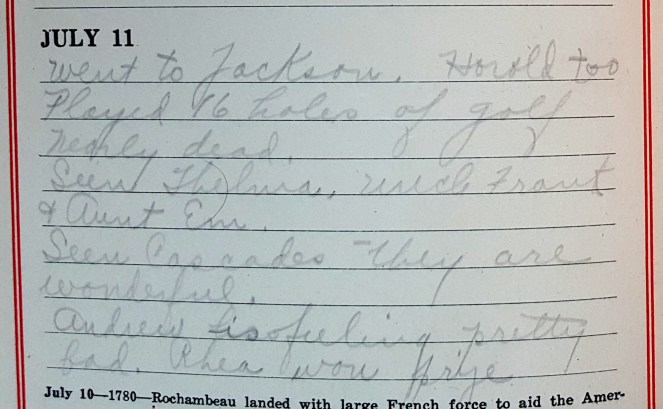 JULY 11
Went to Jackson. Harold too
Played 16 holes of golf
nearly dead.
Seen Thelma, Frank
& Aunt Em.
Seen Cascades - they are
wonderful.
Andrew feeling pretty
bad. Rhea won prize
July 10—1780—Rochambeau landed with large French force to aid the Amer-